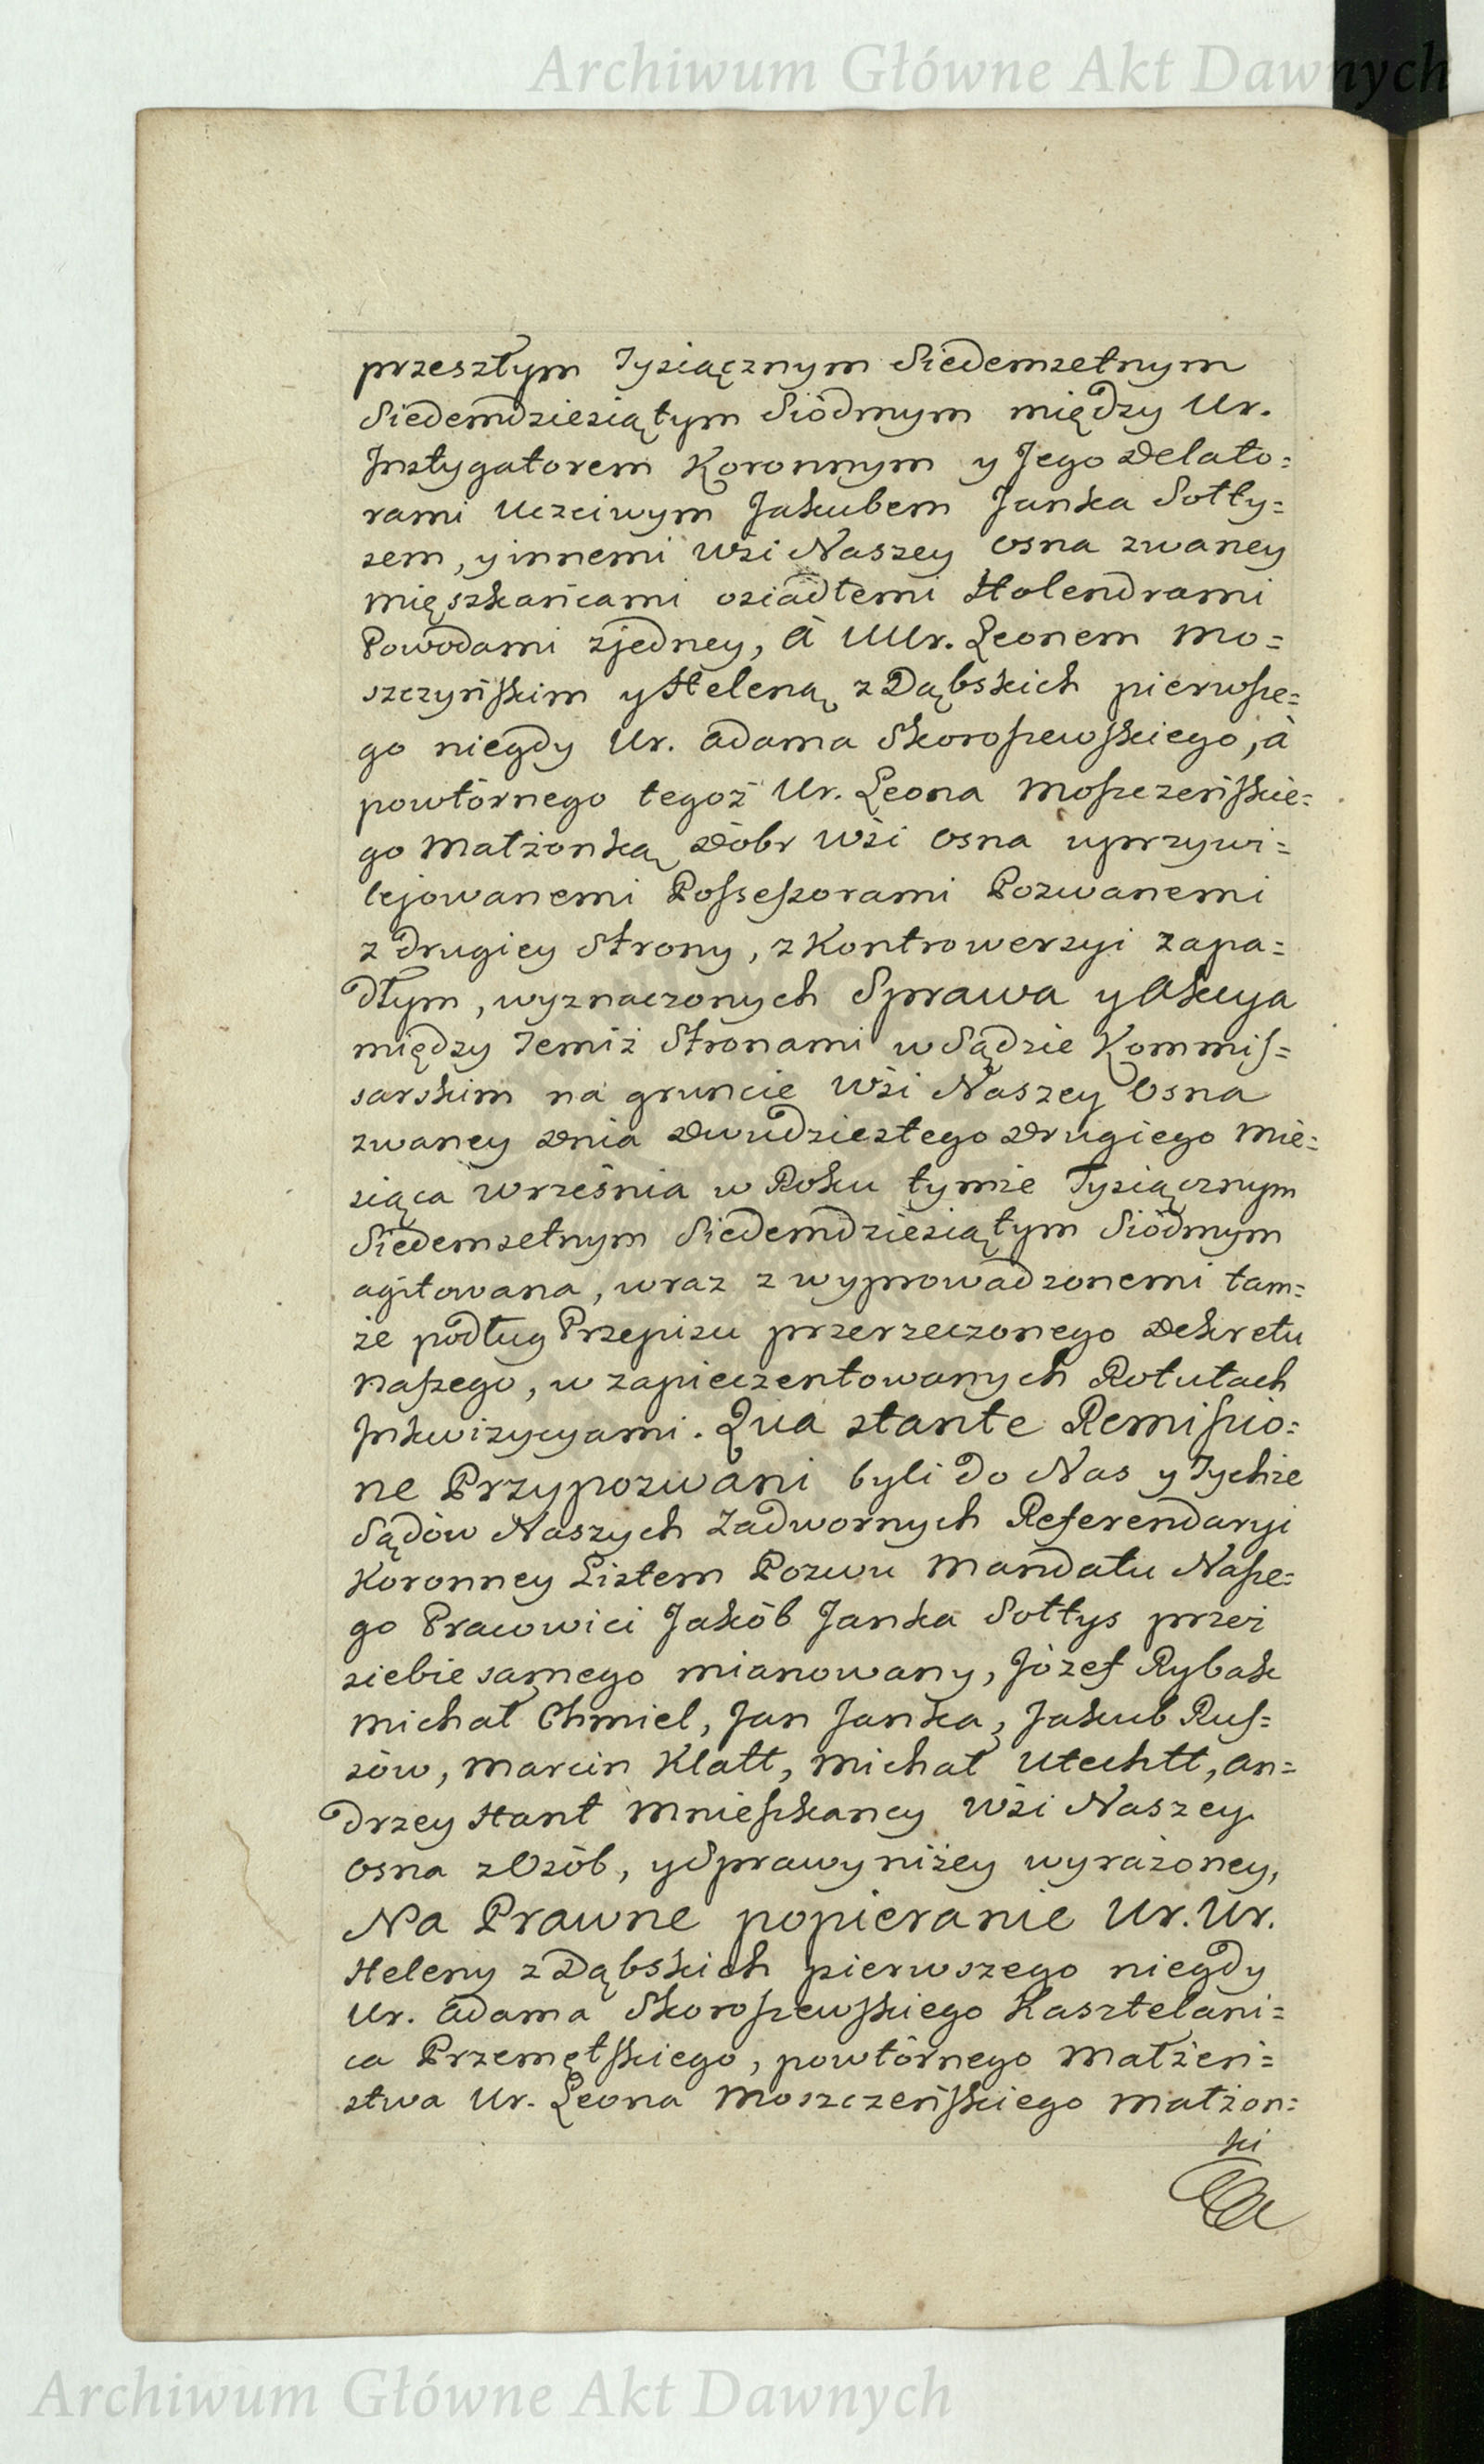 Archiwum Główne Akt Dawnych
przeszłym Tysiącznym Siedemsetnym
Siedemdziesiątym Siódmym między Ur.
Instygatorem Koronnym y Jego Delato=
rami Uczciwym Jakubem Janka Sołty=
sem, y innemi Wsi Naszey Osna zwaney
mięszkańcami osiadłemi Holendrami
Powodami zjedney, à UUr. Leonem Mo=
szczyńskim y Heleną z Dąbskich pierwsze=
go niegdy Ur. Adama Skoroszewskiego, à
powtórnego tegoż Ur. Leona Moszczeńskie=
go Małżonką Dóbr Wsi Osna uprzywi=
lejowanemi Possessorami Pozwanemi
z drugiey Strony, z Kontrowersyi zapa=
dłym, wyznaczonych Sprawa y Akcya
między Temiż Stronami w Sądzie Kommis=
sarskim na gruncie Wsi Naszey Osna
zwaney Dnia Dwudziestego Drugiego Mie=
siąca Września w Roku tymże Tysiącznym
Siedemsetnym Siedemdziesiątym Siódmym
agitowana, wraz z wyprowadzonemi tam=
że podług Przepisu przerzeczonego Dekretu
naszego, w zapieczentowanych Rotułach
Inkwizycyami. Qua stante Remissio=
ne Przypozwani byli do Nas y Tychże
Sądów Naszych Zadwornych Referendaryi
Koronney Listem Pozwu Mandatu Nasze=
go Pracowici Jakób Janka Sołtys przez
siebie samego mianowany, Józef Rybak
Michał Chmiel, Jan Janka, Jakub Rus=
sów, Marcin Klatt, Michał Utechtt, An=
drzey Hant Mnieszkancy Wsi Naszey
Osna z Osób, y Sprawy niżey wyrażoney,
Na Prawne popieranie Ur. Ur.
Heleny z Dąbskich pierwszego niegdy
Ur. Adama Skoroszewskiego Kasztelani=
ca Przemętskiego, powtórnego Małżeń=
stwa Ur. Leona Moszczeńskiego Małżon=
ki
Archiwum Główne Akt Dawnych